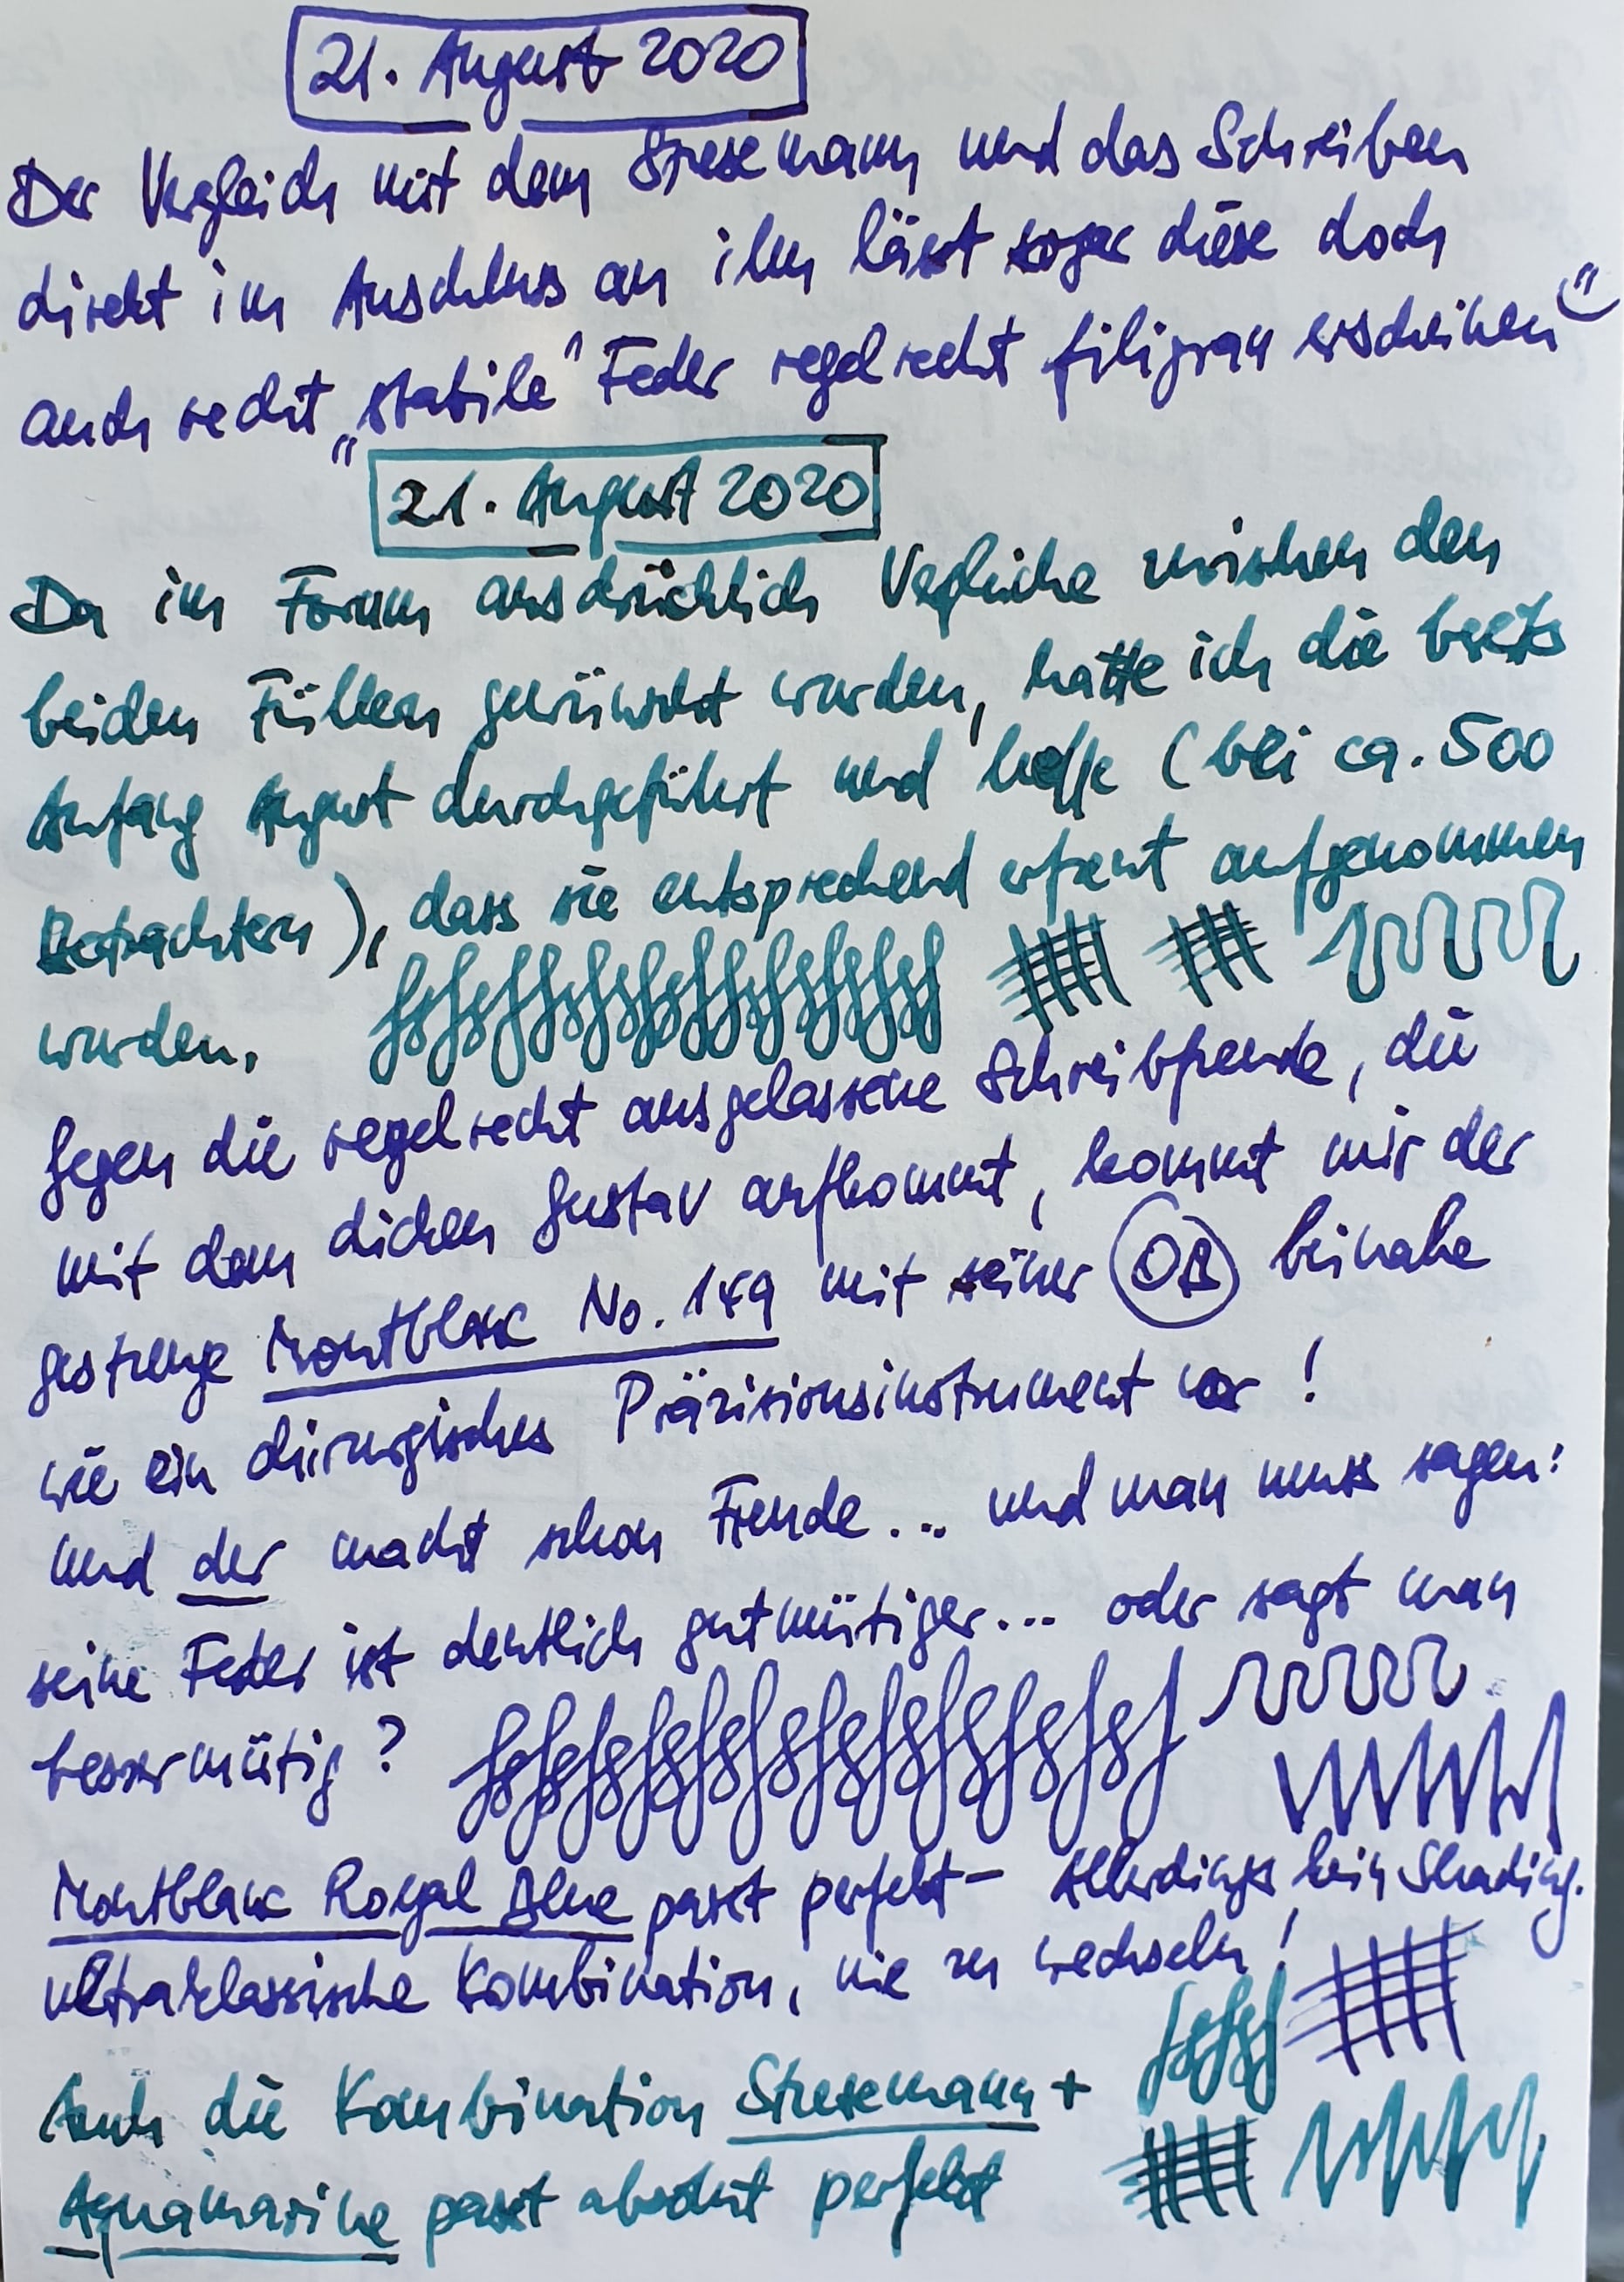 21. August 2020
Der Vergleich mit dem Stresemann und das Schreiben
direkt im Anschluss an ihn lässt sogar diese doch
auch recht „stabile" Feder regelrecht filigran erscheinen
21. August 2020
Da im Forum ausdrücklich Vergleiche zwischen den
beiden Füllern gewünscht wurden, hatte ich die bereits
Anfang August durchgeführt und hoffe (bei ca. 500
Betrachtern), dass sie entsprechend erfreut aufgenommen
wurden.
Gegen die regelrecht ausgelassene Schreibfreude, die
mit dem dicken Gustav aufkommt, kommt mir der
gestrenge Montblanc No. 149 mit seiner OB beinahe
wie ein chirurgisches Präzisionsinstrument vor!
und der macht schon Freude... und man muss sagen:
seine Feder ist deutlich gutmütiger... oder sagt man
bessermütig?
Montblanc Royal Blue passt perfekt – Allerdings kein Shading.
ultraklassische Kombination, nie zu wechseln!
Auch die Kombination Stresemann +
Aquamarine passt absolut perfekt